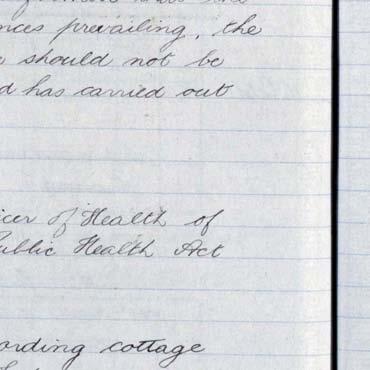 nces prevailing, the
should not be
d has carried out
icer of Health of
Public Health Act
ording cottage